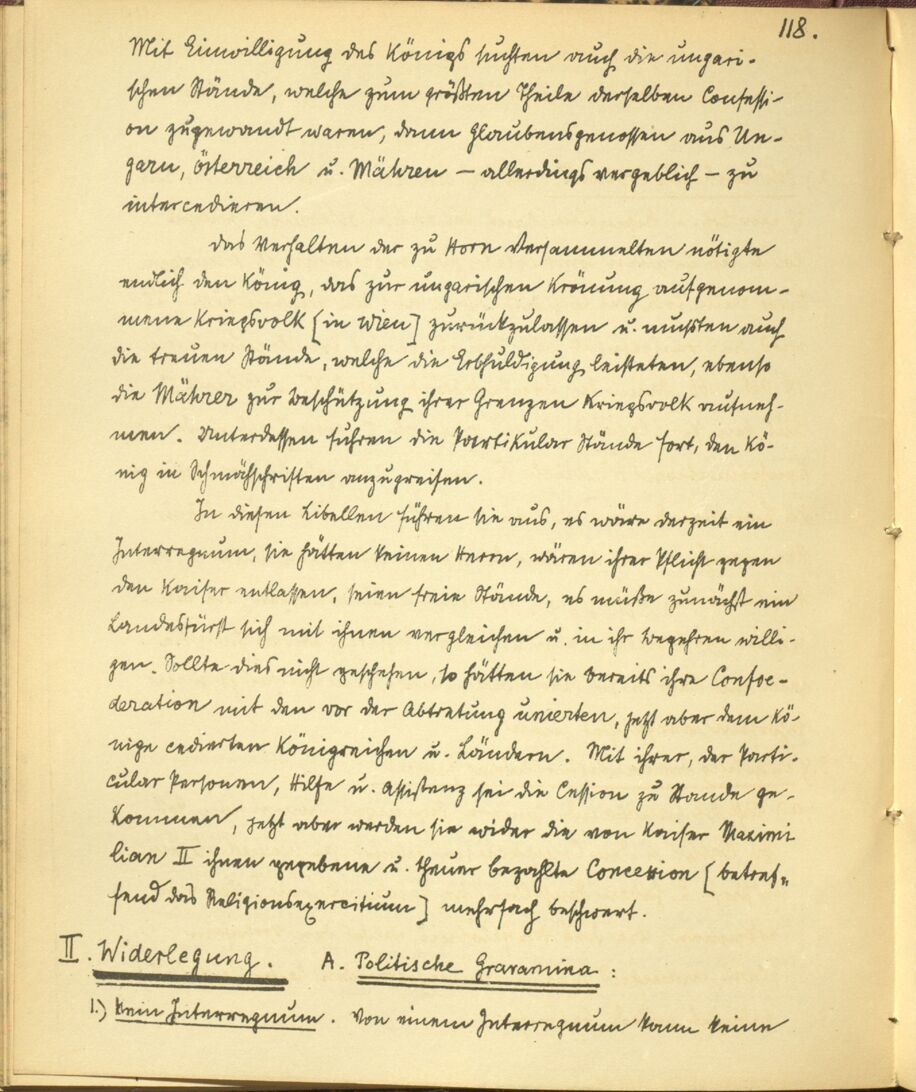 118.
Mit Einwilligung des Königs suchten auch die ungari-
schen Stände, welche zum größten Theile derselben Confessi-
on zugewandt waren, dann Glaubensgenossen aus Un-
garn, Österreich u. Mähren – allerdings vergeblich – zu
intercedieren.
Das Verhalten der zu Horn Versammelten nötigte
endlich den König, das zur ungarischen Krönung aufgenom-
mene Kriegsvolk [in Wien] zurückzulassen u. mußten auch
die treuen Stände, welche die Erbhuldigung leisteten, ebenso
die Mährer zur Beschützung ihrer Grenzen Kriegsvolk aufneh-
men. Unterdessen fuhren die Partikular Stände fort, den Kö-
nig in Schmähschriften anzugreifen.
In diesen Libellen führen sie aus, es wäre derzeit ein
Interregnum, sie hätten keinen Herrn, wären ihrer Pflicht gegen
den Kaiser entlassen, seien freie Stände, es müße zunächst ein
Landesfürst sich mit ihnen vergleichen u. in ihr Begehren willi-
gen. Sollte dies nicht geschehen, so hätten sie bereits ihre Confoe-
deration mit den vor der Abtretung unierten, jetzt aber dem Kö-
nige cedierten Königreichen u. Ländern. Mit ihrer, der Parti-
cular Personen, Hilfe u. Assistenz sei die Cession zu Stande ge-
kommen, jetzt aber werden sie wider die von Kaiser Maximi
lian II ihnen gegebene u. theuer bezahlte Concession [betref-
fend das Religionsexercitium] mehrfach beschwert.
II. Widerlegung. A. Politische Gravamina:
1.) Kein Interregnum. Von einem Interregnum kann keine